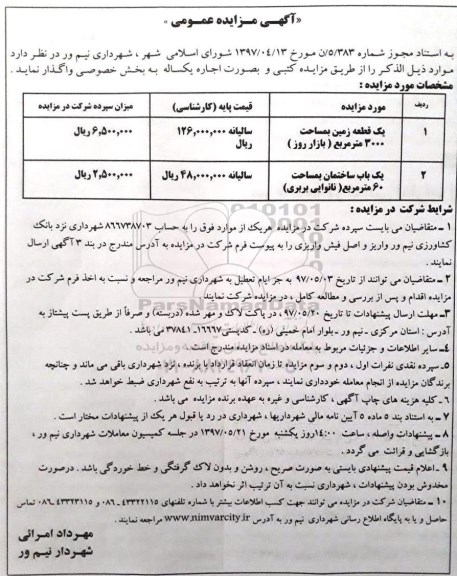 «آگهی مزایده عمومی»
به استناد مجوز شماره ۵/۳۸۳/ن مورخ ۱۳۹۷/۰۴/۱۳ شورای اسلامی شهر ، شهرداری نیم ور در نظر دارد
موارد ذیل الذکر را از طریق مزایده کتبی و بصورت اجاره یکساله به بخش خصوصی واگذار نماید .
مشخصات مورد مزایده :
ردیف
مورد مزایده
قیمت پایه (کارشناسی)
میزان سپرده شرکت در مزایده
۱
یک قطعه زمین بمساحت
۳۰۰۰ مترمربع ( بازار روز )
سالیانه ۱۲۶,۰۰۰,۰۰۰
ریال
۶,۵۰۰,۰۰۰ ریال
۲
یک باب ساختمان بمساحت
۶۰ مترمربع( نانوایی بربری)
سالیانه ۴۸,۰۰۰,۰۰۰ ریال
۲,۵۰۰,۰۰۰ ریال
شرایط شرکت در مزایده :
۱ – متقاضیان می بایست سپرده شرکت در مزایده هریک از موارد فوق را به حساب ۸۶۶۷۳۸۷۰۳ شهرداری نزد بانک
کشاورزی نیم ور واریز و اصل فیش واریزی را به پیوست فرم شرکت در مزایده به آدرس مندرج در بند ۳ آگهی ارسال
نمایند .
۲ – متقاضیان می توانند از تاریخ ۹۷/۰۵/۰۳ به جز ایام تعطیل به شهرداری نیم ور مراجعه و نسبت به اخذ فرم شرکت در
مزایده اقدام و پس از بررسی و مطالعه کامل ، در مزایده شرکت نمایند
۳– مهلت ارسال پیشنهادات تا تاریخ ۹۷/۰۵/۲۰ ، در پاکت لاک و مهر شده (دربسته) و صرفاً از طریق پست پیشتاز به
آدرس : استان مرکزی ـ نیم ور ـ بلوار امام خمینی (ره) ـ کدپستی ۱۶۶۶۷ـ۳۷۸۴۱ می باشد .
۴– سایر اطلاعات و جزئیات مربوط به معامله در اسناد مزایده مندرج است .
۵– سپرده نقدی نفرات اول ، دوم و سوم مزایده تا زمان انعقاد قرارداد با برنده ، نزد شهرداری باقی می ماند و چنانچه
برندگان مزایده از انجام معامله خودداری نمایند ، سپرده آنها به ترتیب به نفع شهرداری ضبط خواهد شد .
۶ – کلیه هزینه های چاپ آگهی ، کارشناسی و غیره به عهده برنده مزایده می باشد .
۷ – به استناد بند ۵ ماده ۵ آیین نامه مالی شهرداریها ، شهرداری در رد یا قبول هر یک از پیشنهادات مختار است .
۸ – پیشنهادات واصله ، ساعت ۱۴:۰۰ روز یکشنبه مورخ ۱۳۹۷/۰۵/۲۱ در جلسه کمیسیون معاملات شهرداری نیم ور ،
بازگشایی و قرائت می گردد .
۹ – اعلام قیمت پیشنهادی بایستی به صورت صریح ، روشن و بدون لاک گرفتگی و خط خوردگی باشد . درصورت
مخدوش بودن پیشنهادات ، شهرداری نسبت به آن ترتیب اثر نخواهد داد .
۱۰ – متقاضیان شرکت در مزایده می توانند جهت کسب اطلاعات بیشتر با شماره تلفنهای ۴۳۳۲۲۱۱۵ ـ۰۸۶ و ۴۳۳۲۳۱۱۵ ـ۰۸۶ تماس
حاصل و یا به پایگاه اطلاع رسانی شهرداری نیم ور به آدرس www.nimvarcity.ir مراجعه نمایند .
مهرداد امرائی
شهردار نیم ور